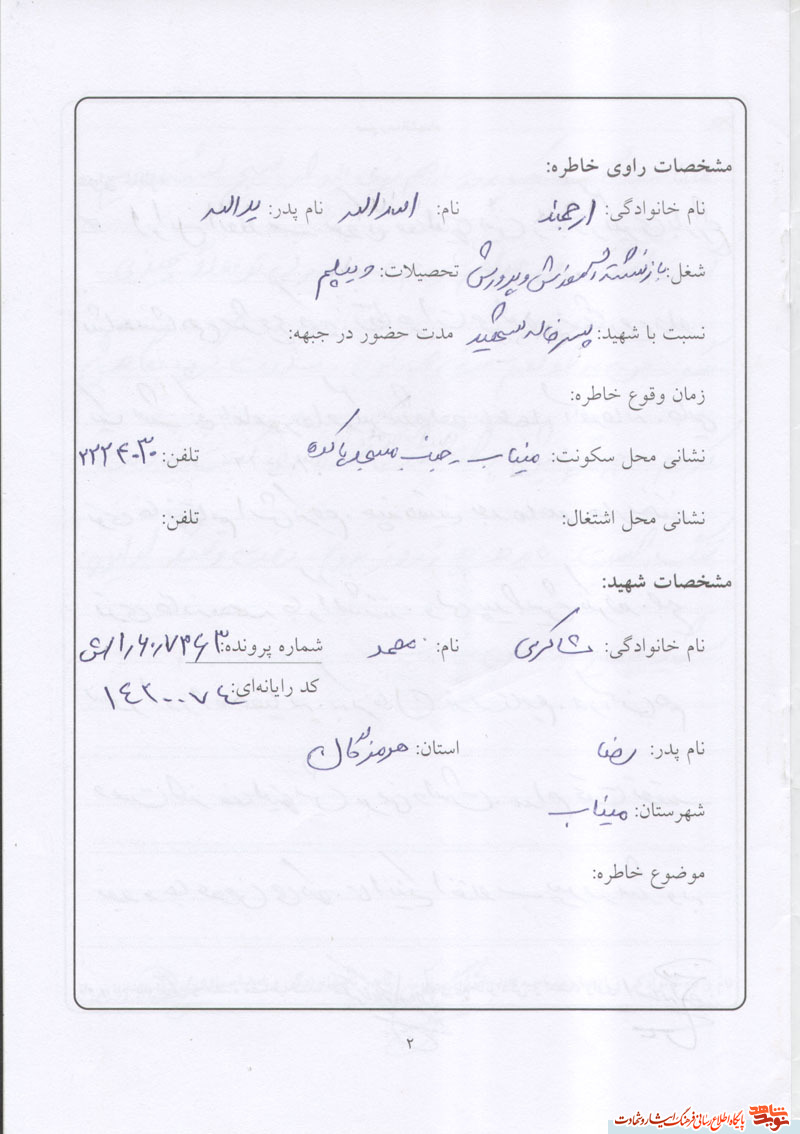 مشخصات راوی خاطره:
نام خانوادگی: ارجمند نام: اسداله نام پدر: یداله
شغل: بازنشسته آموزش و پرورش تحصیلات: دیپلم
نسبت با شهید: پسر خاله شهید مدت حضور در جبهه:
زمان وقوع خاطره:
نشانی محل سکونت: میناب - جنب مسجد پاکوه تلفن: ۲۲۲۴۰۳۰
نشانی محل اشتغال: تلفن:
مشخصات شهید:
نام خانوادگی: شاکری نام: محمد شماره پرونده:
کد رایانه‌ای: ۱۴۲۰۰۷۴
نام پدر: رضا استان: هرمزگان
شهرستان: میناب
موضوع خاطره:
۲
نوید شاهد پایگاه اطلاع رسانی فرهنگ ایثار و شهادت